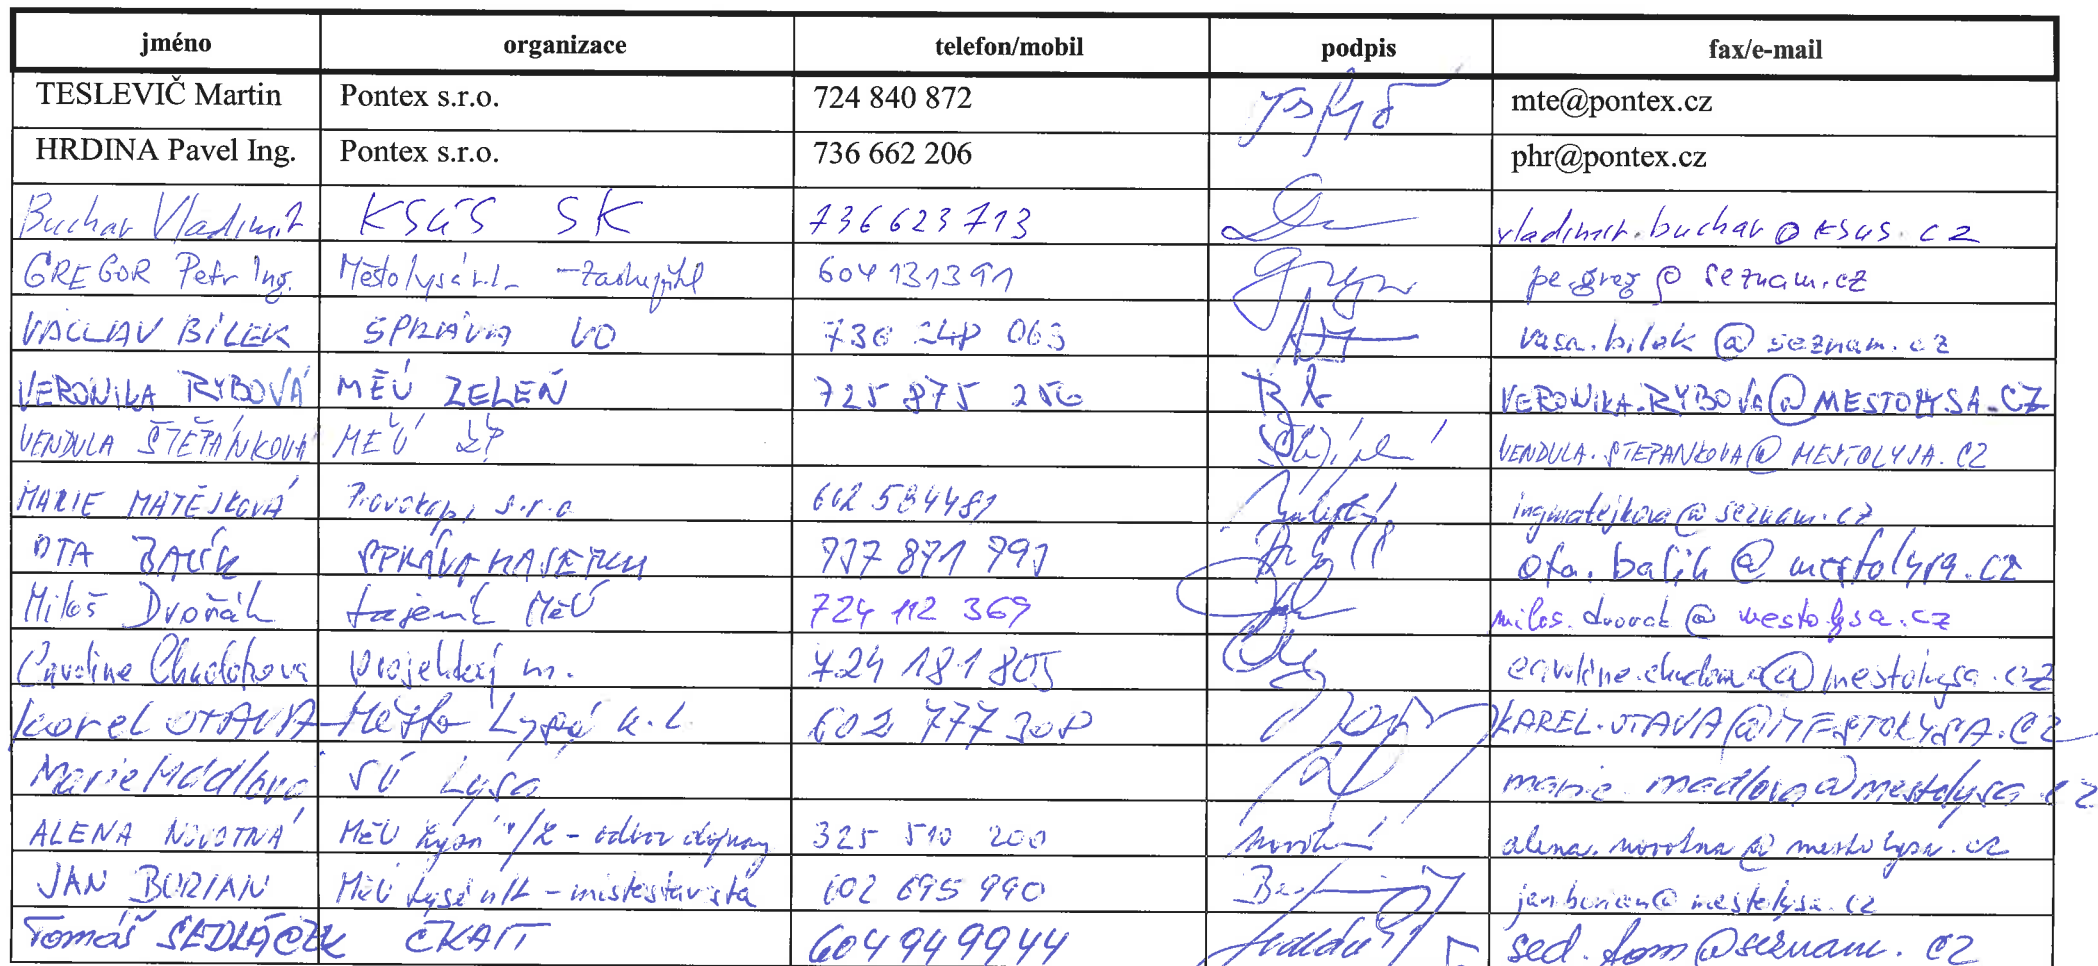 jméno organizace telefon/mobil podpis fax/e-mail
TESLEVIČ Martin Pontex s.r.o. 724 840 872 mte@pontex.cz
HRDINA Pavel Ing. Pontex s.r.o. 736 662 206 phr@pontex.cz
Buchar Vladimír KSÚS SK 736623713 vladimir.buchar@ksus.cz
GREGOR Petr Ing. Město Lysá n.L. 604131391 pe.greg@seznam.cz
VÁCLAV BÍLEK SPRÁVA VO 736 248 063 vasa.bilek@seznam.cz
VERONIKA RYBOVÁ MĚÚ ZELEŇ 725 875 256 VERONIKA.RYBOVA@MESTOLYSA.CZ
VENDULA ŠTĚPÁNKOVÁ MĚÚ ŽP VENDULA.STEPANKOVA@MESTOLYSA.CZ
MARIE MATĚJKOVÁ s.r.o 602 584481 ingmatejkova@seznam.cz
OTA BALÍK SPRÁVA MAJETKU 737 871 791 ota.balik@mestolysa.cz
Miloš Dvořák tajemník MěÚ 724 112 369 milos.dvorak@mestolysa.cz
Caroline Chudobová projektový m. 724 181 805 @mestolysa.cz
Karel OTAVA Město Lysá n.L. 602 777 308 KAREL.OTAVA@MESTOLYSA.CZ
Marie Mádlová SÚ Lysá marie.madlova@mestolysa.cz
ALENA NOVOTNÁ MěÚ Lysá n/L - odbor dopravy 325 510 200 Novotná alena.novotna@mestolysa.cz
JAN BURIAN MěÚ Lysá n/L - místostarosta 602 695 990 jan.burian@mestolysa.cz
Tomáš SEDLÁČEK ČKAIT 604949944 sed.tom@seznam.cz